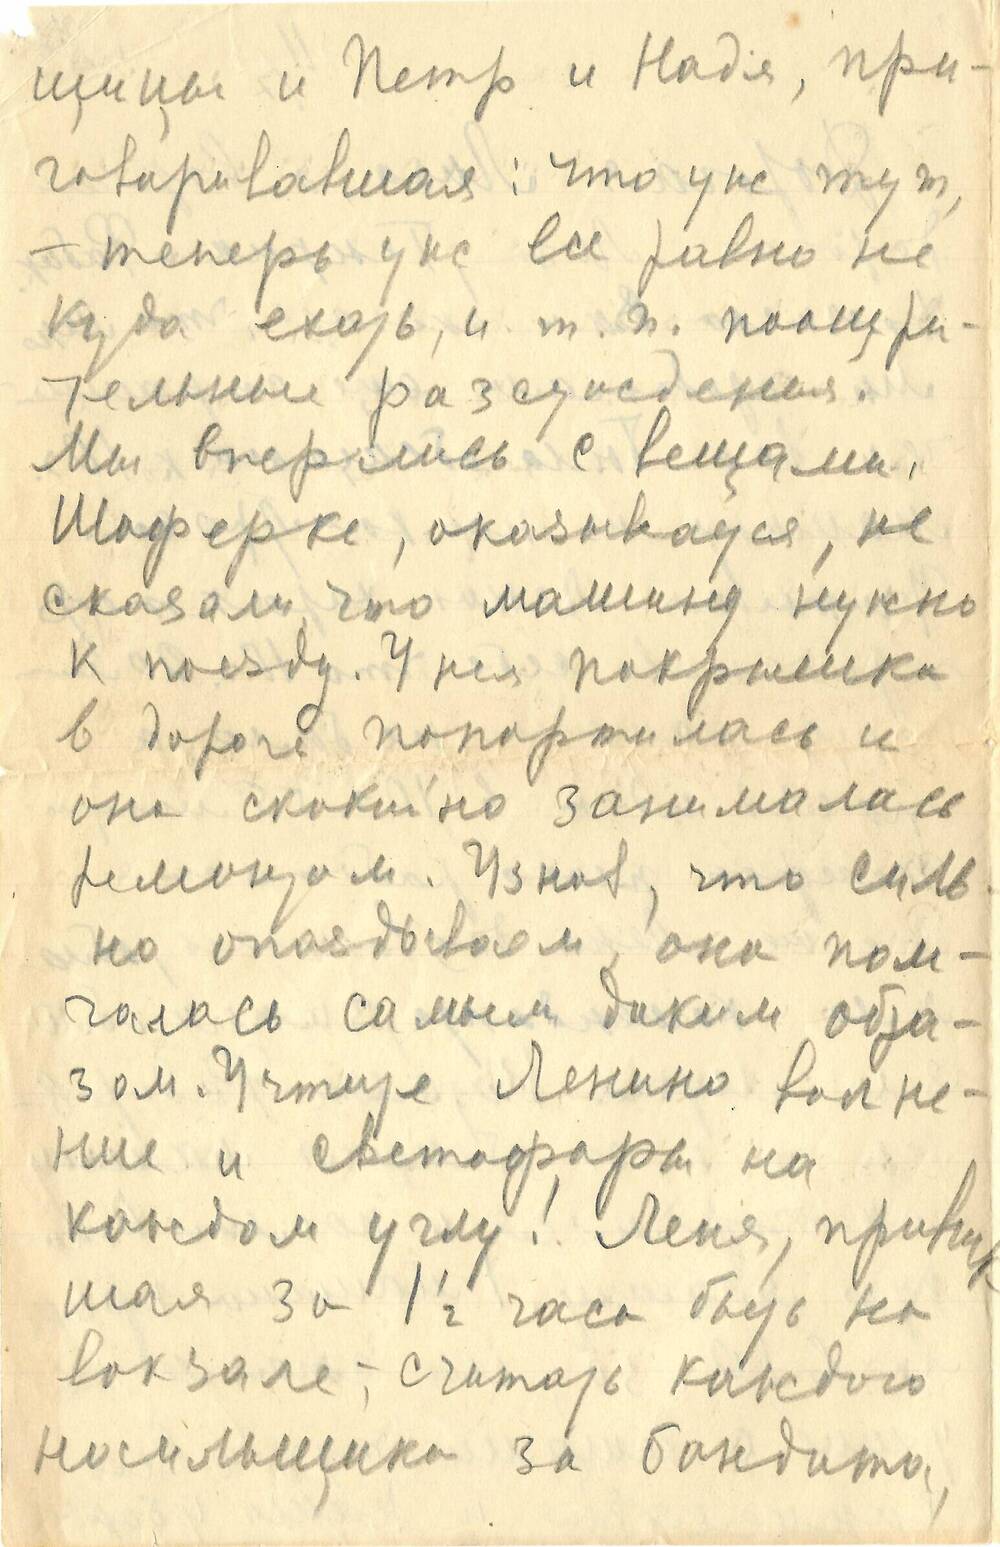 щицы и Петр и Надя, при-
говаривавшая: что уж тут,
- теперь уж все равно не
куда ехать, и т. п. поощри-
тельные разсуждения.
Мы вперлись с вещами.
Шоферке, оказывается, не
сказали, что машину нужно
к поезду. У нея покрышка
в дороге попортилась и
она спокойно занималась
ремонтом. Узнав, что силь-
но опаздываем, она пом-
чалась самым диким обра-
зом. Учтите Ленино волне-
ние и светофоры на
каждом углу! Леня, привык
шая за 1½ часа быть на
вокзале, считать каждого
носильщика за бандита,